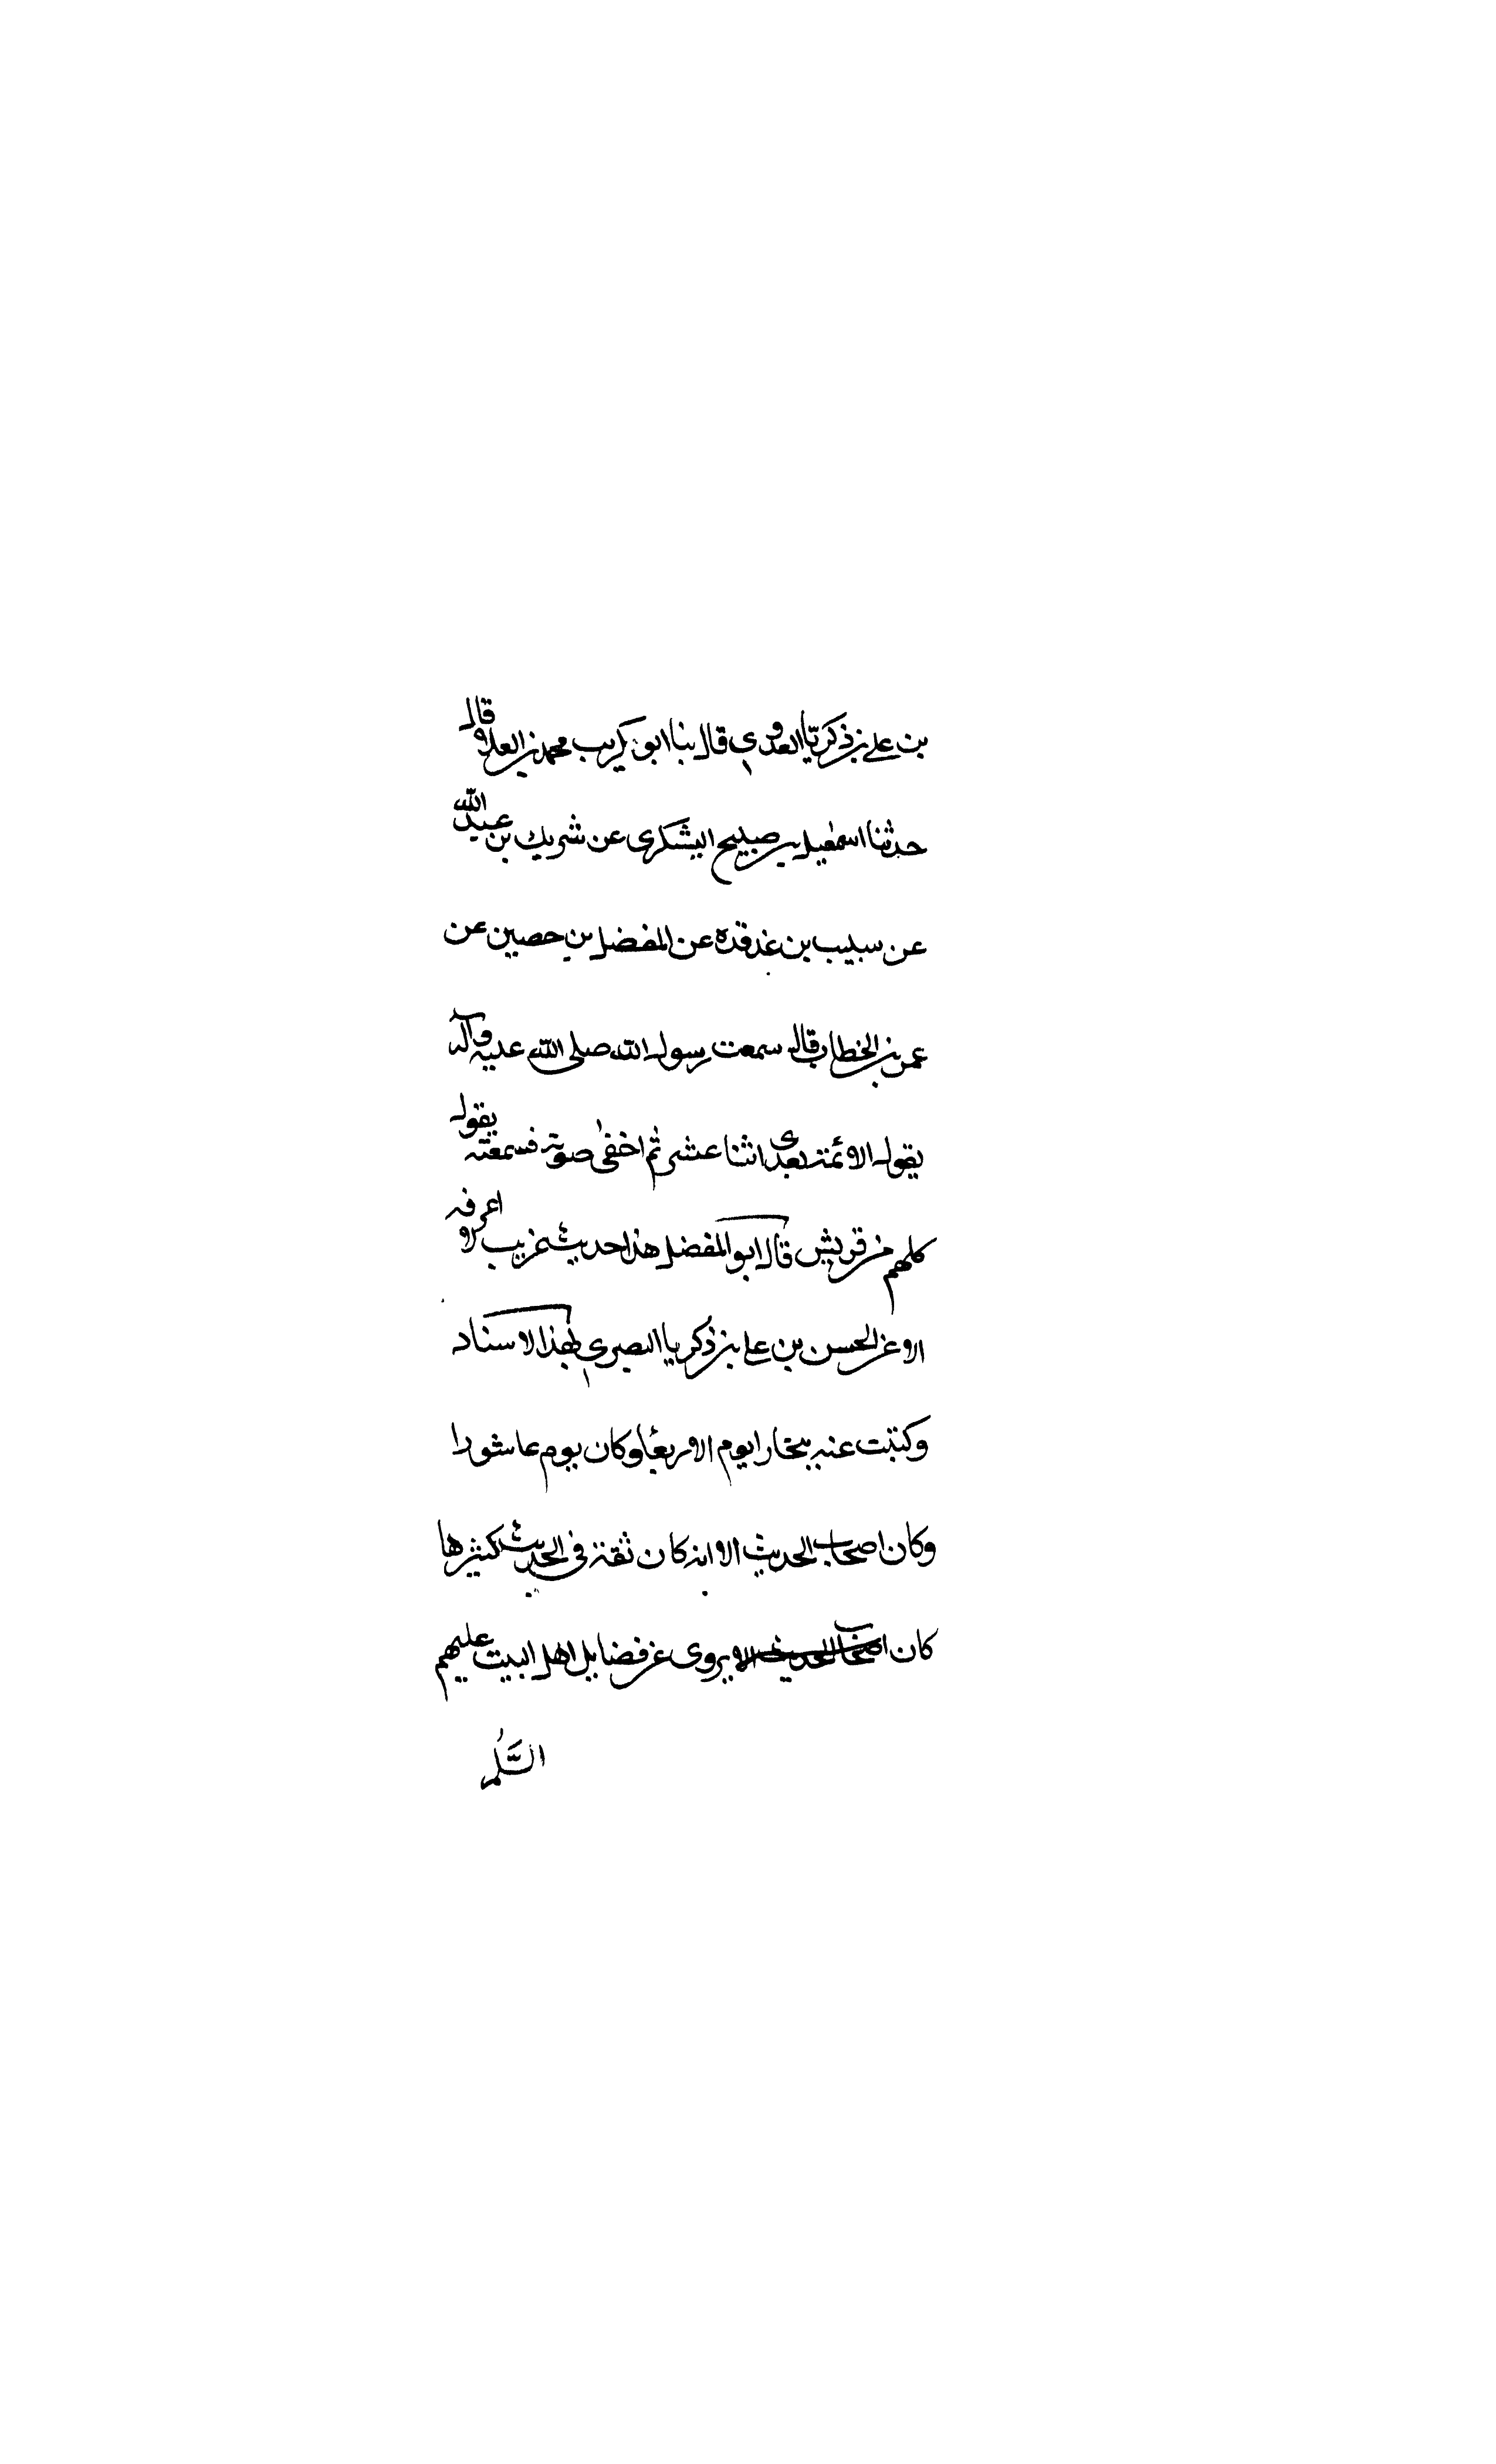 بن علی بن ذکریّا العدوی قال ثنا ابو کریب محمد بن العلاء قال
حدثنا اسمعیل بن صبیح الیشکری عن شریک بن عبدالله
عن سبیب بن غرقده عن المفضل بن حصین عن
عمر بن الخطاب قال سمعت رسول الله صلی الله علیه وآله
یقول الائمة بعدی اثنا عشر ثم اخفی صوته فسمعته یقول
کلهم من قریش قال ابوالمفضل هذا حدیث غریب لا اعرفه
الا عن الحسن بن علی بن ذکریا البصری بهذا الاسناد
وکتبت عنه ببخارا یوم الاربعاء وکان یوم عاشورا
وکان اصحاب الحدیث الا انه کان ثقة فی الحدیث کثیرها
کان یروی عن فضایل اهل البیت علیهم
السّلم